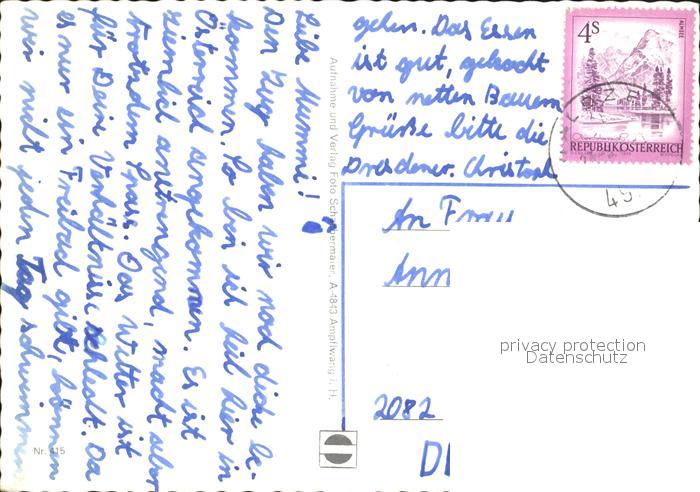 Liebe Mummi!
Den Zug haben wir noch dicke be-
kommen. So bin ich heil hier in
Österreich angekommen. Es ist
ziemlich anstrengend, macht aber
trotzdem Spass. Das Wetter ist
für Deine Verhältnisse schlecht. Da
es nur ein Freibad gibt, können
wir nicht jeden Tag schwimmen
gehen. Das Essen
ist gut, gekocht
von netten Bauern
Grüße bitte die
Dresdener. Christoph
Aufnahme und Verlag Foto A-4843 Ampflwang i. H.
Nr. 415
4S
ALMSEE
REPUBLIK ÖSTERREICH
49
An Frau
Ann
2082
privacy protection
Datenschutz